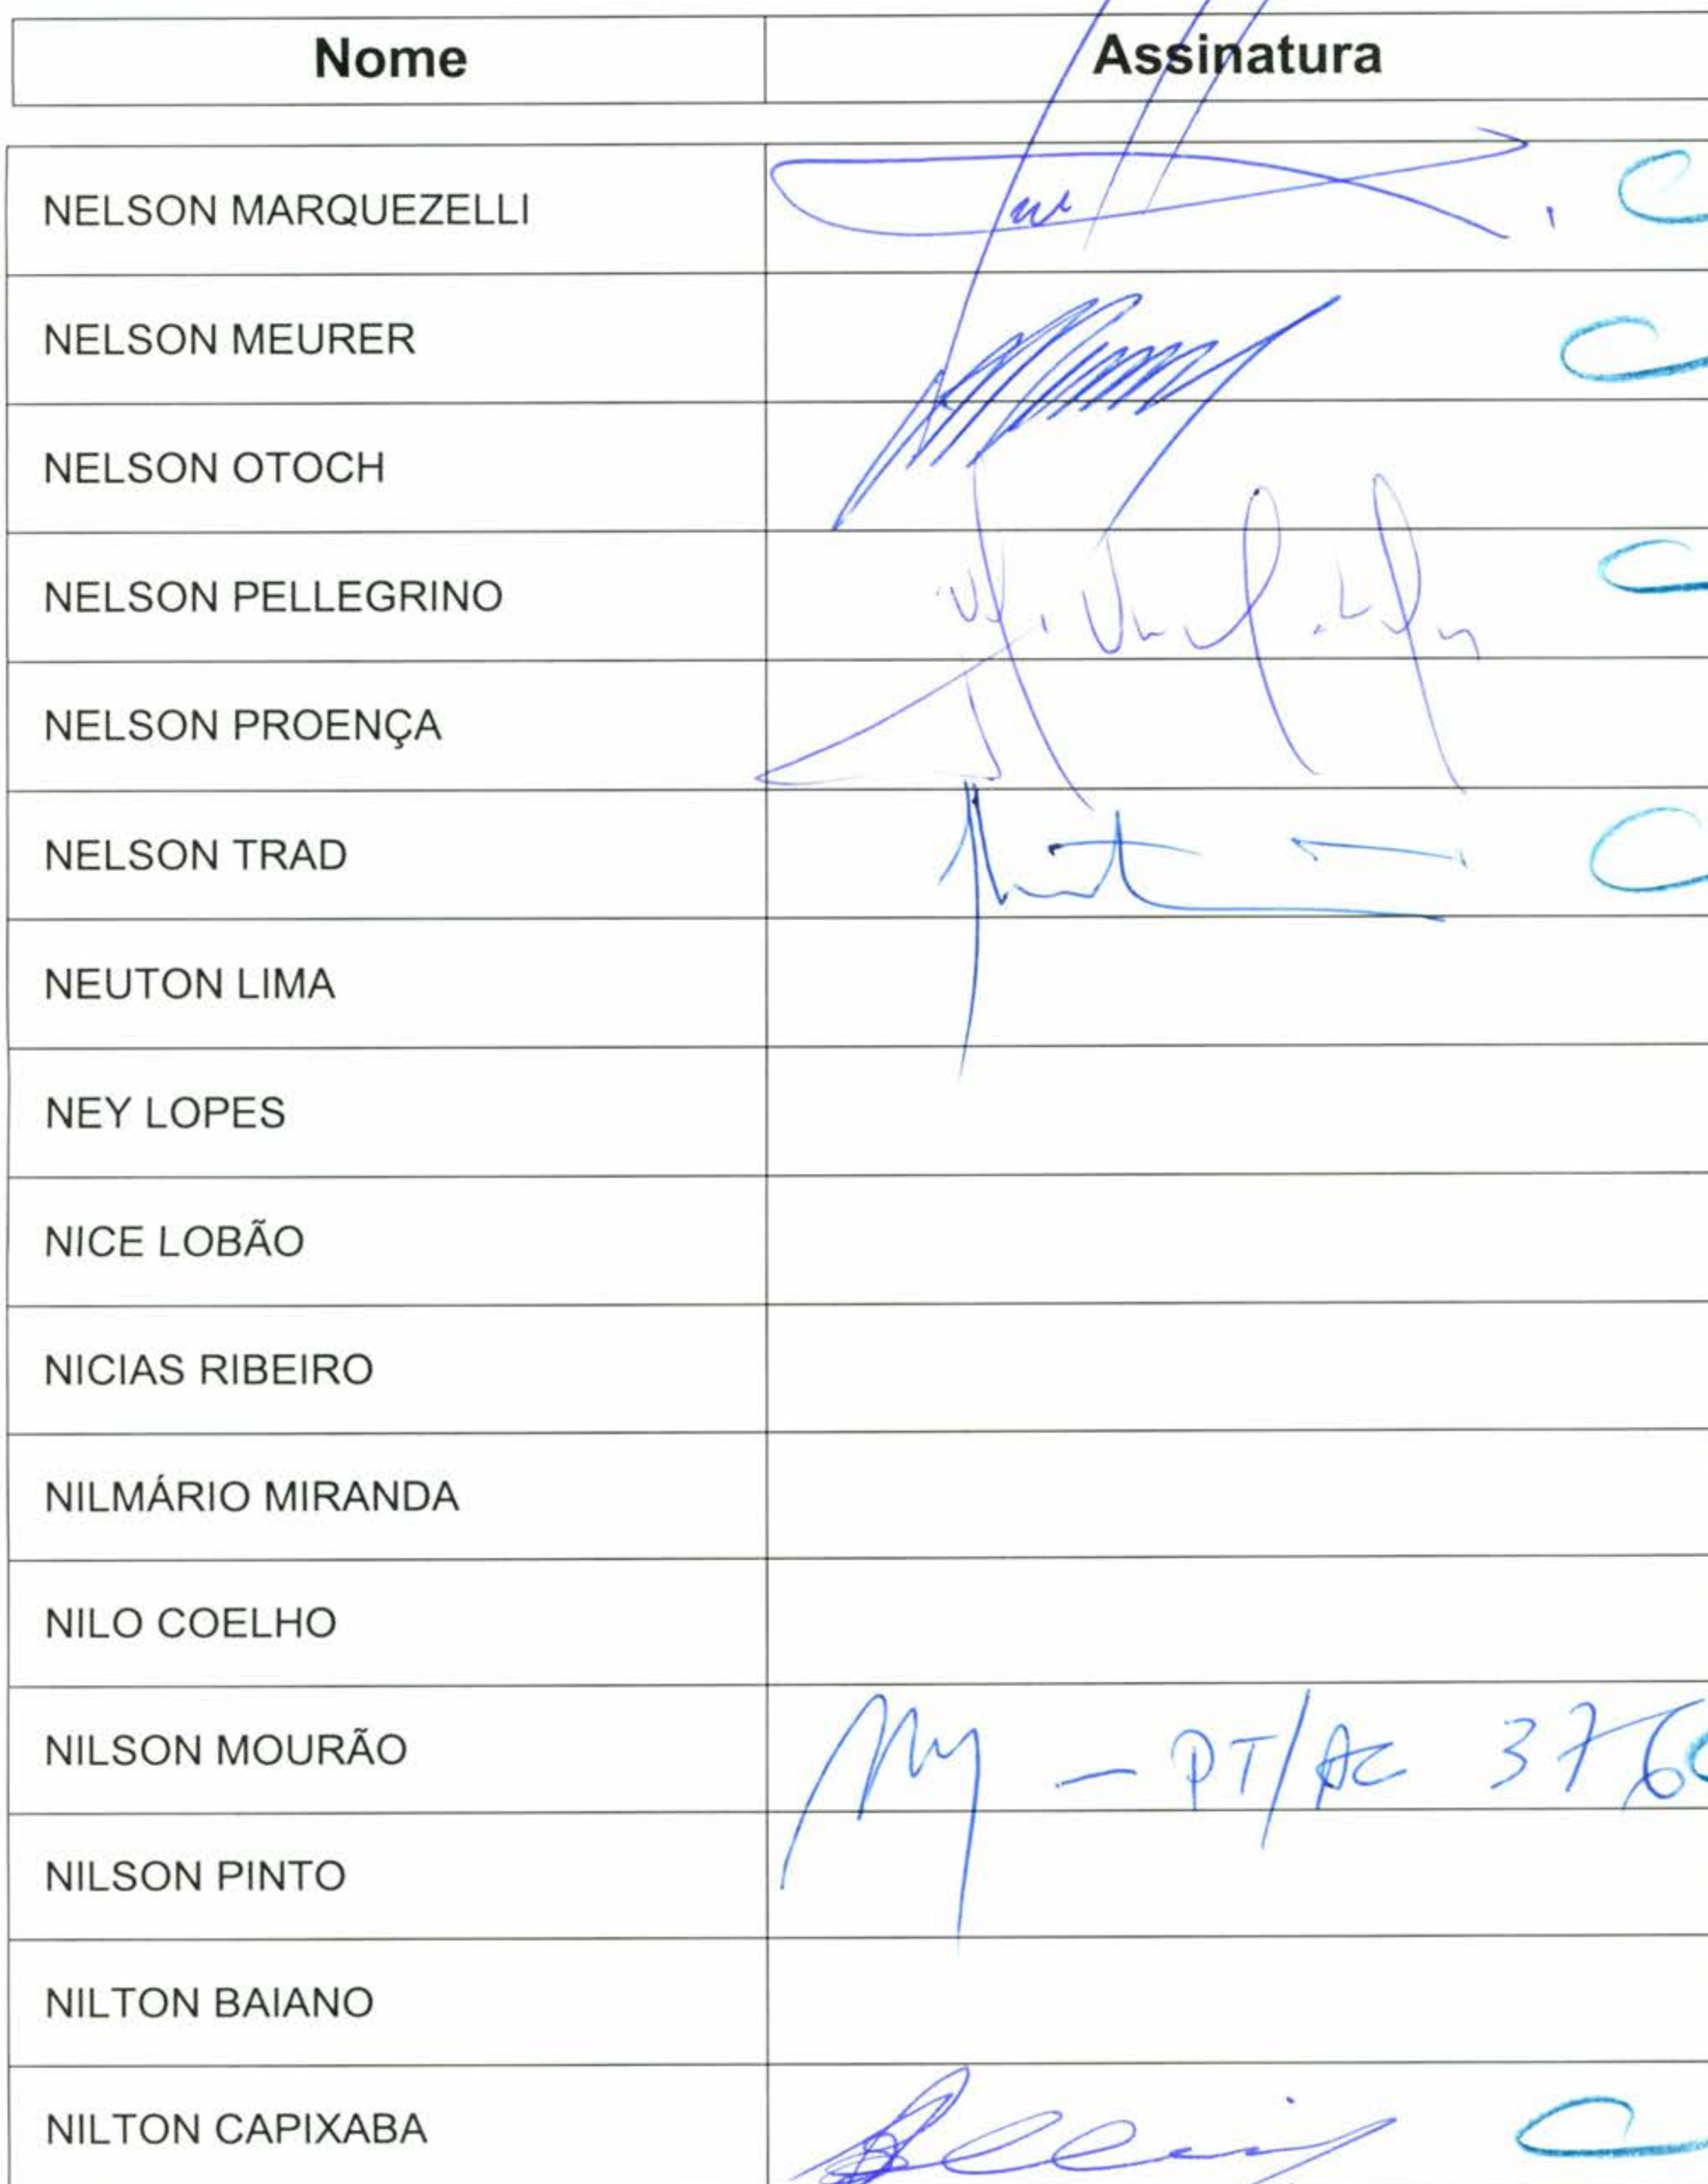 Nome Assinatura
NELSON MARQUEZELLI
NELSON MEURER
NELSON OTOCH
NELSON PELLEGRINO
NELSON PROENÇA
NELSON TRAD
NEUTON LIMA
NEY LOPES
NICE LOBÃO
NICIAS RIBEIRO
NILMÁRIO MIRANDA
NILO COELHO
NILSON MOURÃO - PT/AC 376
NILSON PINTO
NILTON BAIANO
NILTON CAPIXABA